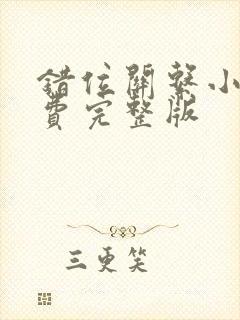 錯位關系小
費完整版
三更笑